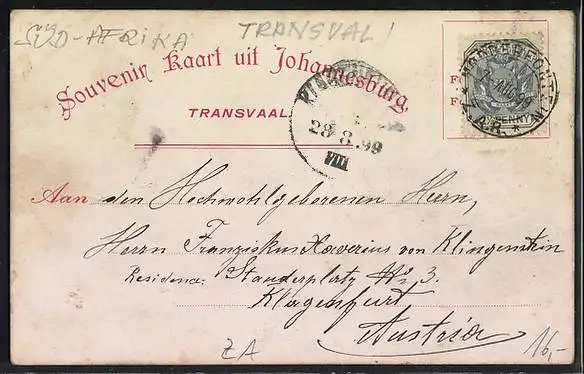 SÜD-AFRIKA TRANSVAL!
Souvenir Kaart uit Johannesburg,
TRANSVAAL
28.8.99
VIII
Z.A.R.
PENNY
Aan den Hochwohlgeborenen Herrn,
Herrn Franziskus Xaverius von Klingenstein
Residenz: Stauderplatz No 3.
Klagenfurt
Austria
ZA
16,-